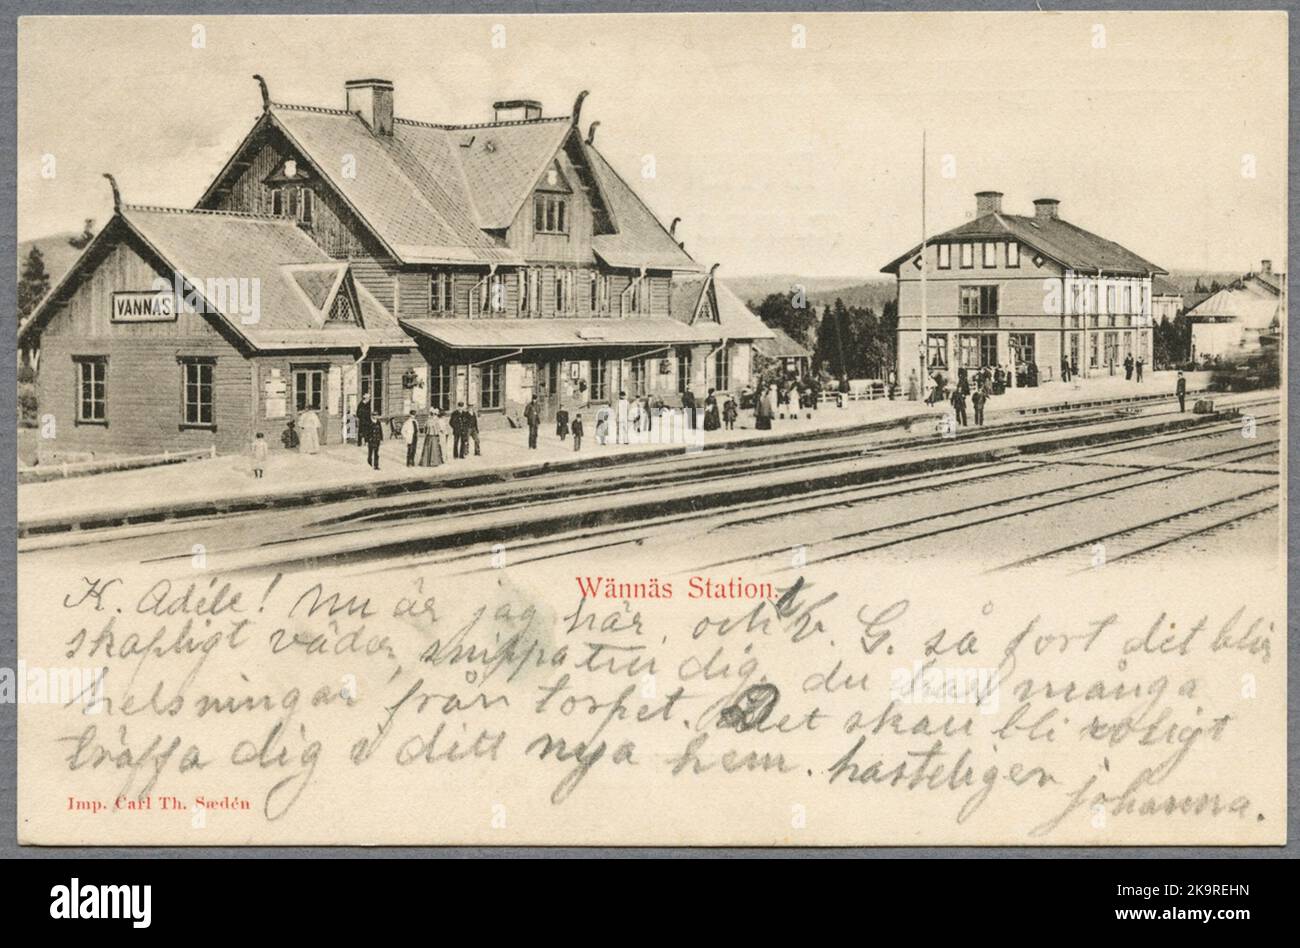 VÄNNÄS
Wännäs Station.
K. Adéle! Nu är jag här, och V. G. så fort det blir
skapligt väder, snippa till dig, du har många
helsningar från torpet. Det skall bli roligt
träffa dig i ditt nya hem. hasteligen
johanna.
Imp. Carl Th. Sædén
alamy
Image ID: K9REHN
www.alamy.com